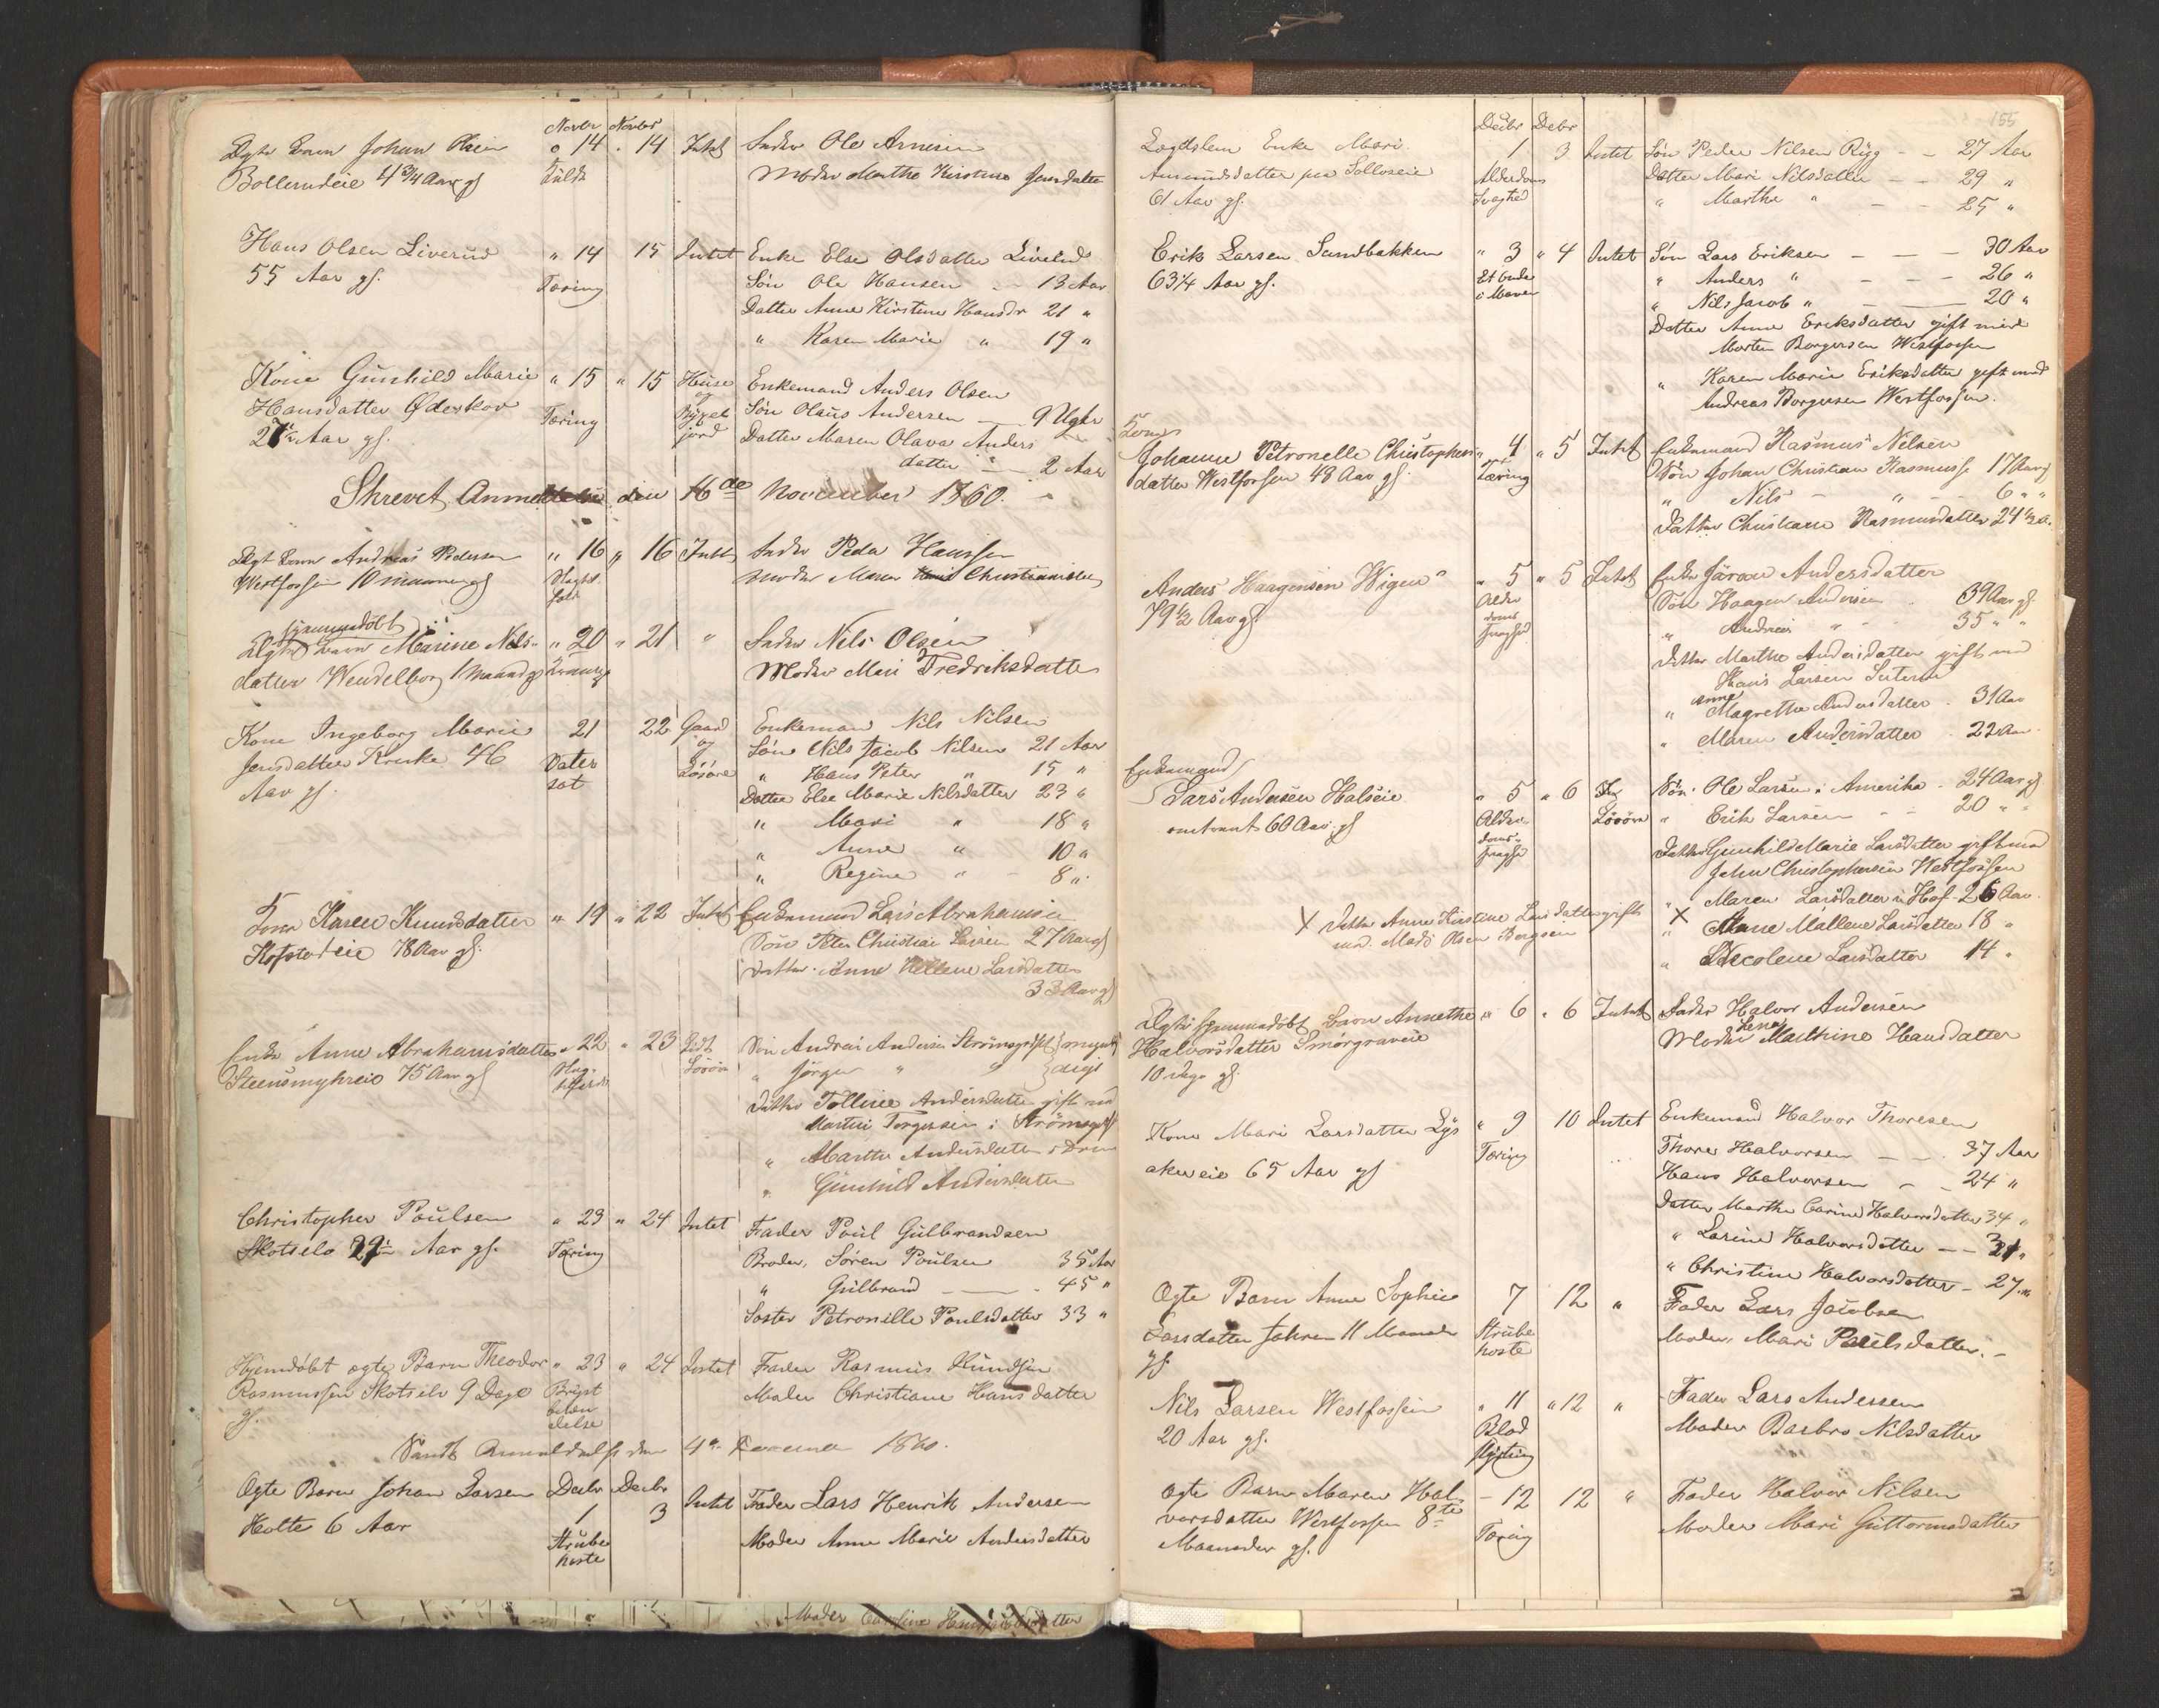 Novbr Novbr
Ægte Barn Johan Olsen " 14 " 14 Intet Fader Ole Arnesen
Bollerudeie 4 3/4 Aar gl Moder Marthe Kirstine Jensdatter
Hans Olsen Liverud " 14 15 Intet Enke Else Olsdatter Liverud
55 Aar gl. Tæring Søn Ole Hansen - 13 Aar
Datter Anne Kirstine Hansdr 21 "
" Karen Marie " 19 "
Kone Gunhild Marie " 15 " 15 Huse Enkemand Anders Olsen
Hansdatter Øderkov Tæring og Bygsel Søn Olaus Andersen 9 Ugkr
Aar gl. jord Datter Maren Olava Anders
datter - 2 Aar
Skrevet Anmeldelse den 16de November 1860.
Ægt Barn Andreas Pedersen " 16 " 16 Intet Fader Peder Hanssen
Westfossen 10 maaneder gl Moder Maren Christiansdatter
hjemmedøbt
Ægte Barn Marine Nils- " 20 " 21 " Fader Nils Olsen
datter Wendelborg 1 Maaned gl Krampe Moder Mari Fredriksdatter
Kone Ingeborg Marie 21 22 Gaard Enkemand Nils Nilsen
Jensdatter Kruke 46 Vater og Søn Nils Jacob Nilsen 21 Aar
Aar gl. sot Løsøre " Hans Peter " 15 "
Datter Else Marie Nilsdatter 23 "
" Mari " 18 "
" Anne " 10 "
" Regine " - 8 "
Kone Karen Knudsdatter " 19 " 22 Intet Enkemand Lars Abrahamsen
Hofstadeie 78 Aar gl. Søn Peter Christian Larsen 27 Aar gl
Datter Anne Hellene Larsdatter
33 Aar gl
Enke Anne Abrahamsdatter " 22 " 23 Lidt Søn Andreas Andersen Strømsgodset myndige
Steensmyhreie 75 Aar gl Løsøre " Jørgen " "
Datter Tolline Andersdatter gift med
Martin Torgersen i Strømsgodset
" Marthe Andersdatter i Dram
" Gunhild Andersdatter
Christopher Poulsen " 23 " 24 Intet Fader Poul Gulbrandsen
Skotselv Aar gl. Tæring Broder, Søren Poulsen 35 Aar
" Gulbrand - 45 "
Søster Petronille Poulsdatter 33 "
Hjemdøbt ægte Barn Theodor " 23 " 24 Intet Fader Rasmus Knudsen
Rasmussen Skotselv 9 Dage Brystbetændelse Moder Christiane Hansdatter
gl.
Sendt Anmeldelse den 4de December 1860.
Ægte Barn Johan Larsen Decbr Decbr Intet Fader Lars Henrik Andersen
Holte 6 Aar 1 3 Moder Anne Marie Andersdatter
Strube
hoste
Moder Caroline
155
Decbr Decbr
Lægdslem Enke Mari 1 3 Intet Søn Peder Nilsen Rygg - - 27 Aar
Amundsdatter paa Solloseie Alderdoms Datter Mari Nilsdatter - - 29 "
61 Aar gl. Svaghed " Marthe " - - 25 "
Erik Larsen Sandbakken " 3 " 4 Intet Søn Lars Eriksen - - - 30 Aar
63 1/4 Aar gl. Et Onde i Maven " Anders " - - 26 "
" Nils Jacob " - - 20 "
Datter Anne Eriksdatter gift med
Morten Borgersen Westfossen
" Karen Marie Eriksdatter gift med
Andreas Borgersen Westfossen.
Kone
Johanne Petronelle Christophers " 4 " 5 Intet Enkemand Rasmus Nilsen
datter Westfossen 48 Aar gl. Tæring Søn Johan Christian Rasmussen 17 Aar gl
" Nils - " - 6 " "
Datter Christiane Rasmusdatter 24 1/2 a.
Anders Haagensen Wigen " 5 " 5 Intet Enke Jøran Andersdatter
79 1/2 Aar gl. Alderdoms Svaghed Søn Haagen Andersen 39 Aar gl.
" Andreas " - 35 " "
Datter Marthe Andersdatter gift med
Hans Larsen
" Anne Magrethe Andersdatter - 31 Aar
" Maren Andersdatter - 22 Aar
Enkemand
Lars Andersen Halseie " 5 " 6 Løsøre Søn Ole Larsen i Amerika - 24 Aar gl
omtrent 60 Aar gl Alderdoms- Svaghed " Erik Larsen - - 20 " "
Datter Gunhild Marie Larsdatter gift med
John Christophersen Westfossen
" Maren Larsdatter i Hof - 26 Aar
X Datter Anne Kirstine Larsdatter gift X " Mallene Larsdatter 18 "
med Mads Olsen Bergsen " Nicolene Larsdatter 14 "
Ægte hjemmedøbt Barn Annethe " 6 " 6 Intet Fader Halvor Andersen
Halvorsdatter Smørgraveie Moder Lena Mathine Hansdatter
10 Uger gl.
Kone Mari Larsdatter Lys " 9 10 Intet Enkemand Halvor Thoresen
akereie 65 Aar gl Tæring Thore Halvorsen - - 37 Aar
Hans Halvorsen - - 24 "
Datter Marthe Carine Halvorsdatter 34 "
" Larine Halvorsdatter - - 31 "
" Christine Halvorsdatter - 27 "
Ægte Barn Anne Sophie 7 12 " Fader Lars Jacobsen
Larsdatter Fahren 11 Maaneder Strube Moder, Mari Paulsdatter. -
gl. hoste
Nils Larsen Westfossen " 11 " 12 " Fader Lars Andersen
20 Aar gl. Blod Moder Barbro Nilsdatter
styrtning
Ægte Barn Maren Hal - 12 12 " Fader Halvor Nilsen
vorsdatter Westfossen 8te Tæring Moder Mari Guttormsdatter
Maaneder gl.